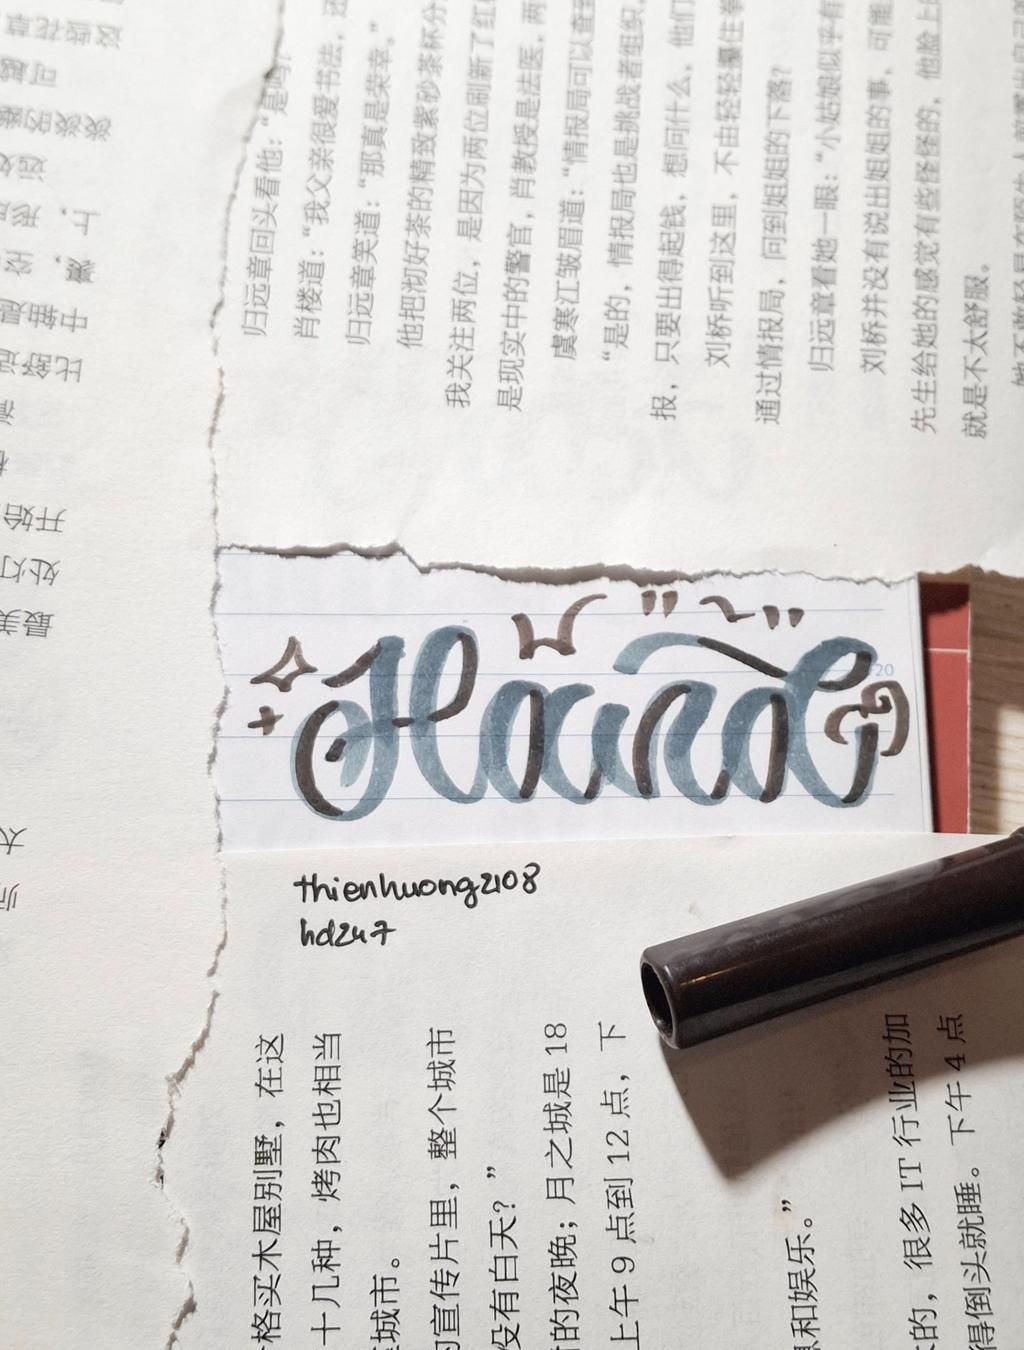 归远章回头看他：“是吗？
肖楼道：“我父亲很爱书法，还
归远章笑道：“那真是荣幸。”
他把沏好茶的精致紫砂茶杯分
我关注两位，是因为两位刷新了红
是现实中的警官，肖教授是法医，两
虞寒江皱眉道：“情报局可以查到
“是的，情报局也是挑战者组织，
报，只要出得起钱，想问什么，他们
刘桥听到这里，不由轻轻攥住拳
通过情报局，问到姐姐的下落？
归远章看她一眼：“小姑娘似乎有
刘桥并没有说出姐姐的事，可能
先生给她的感觉有些怪怪的，他脸上的
就是不太舒服。
开始
处灯
最美
Hard
20
thienhuong2108
hd247
格买木屋别墅，在这
十几种，烤肉也相当
城市。
宣传片里，整个城市
没有白天？”
的夜晚；月之城是 18
上午 9 点到 12 点，下
和娱乐。”
的，很多 IT 行业的加
得倒头就睡。下午 4 点